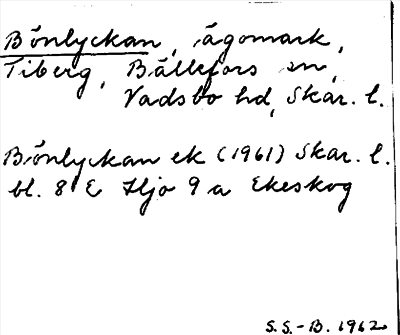 Bönlyckan, ägomark,
Tiberg, Bällefors sn,
Vadsbo hd, Skar. l.
Bönlyckan ek (1961) Skar. l.
bl. 8 E Hjo 9 a Ekeskog
S.S.-B. 1962